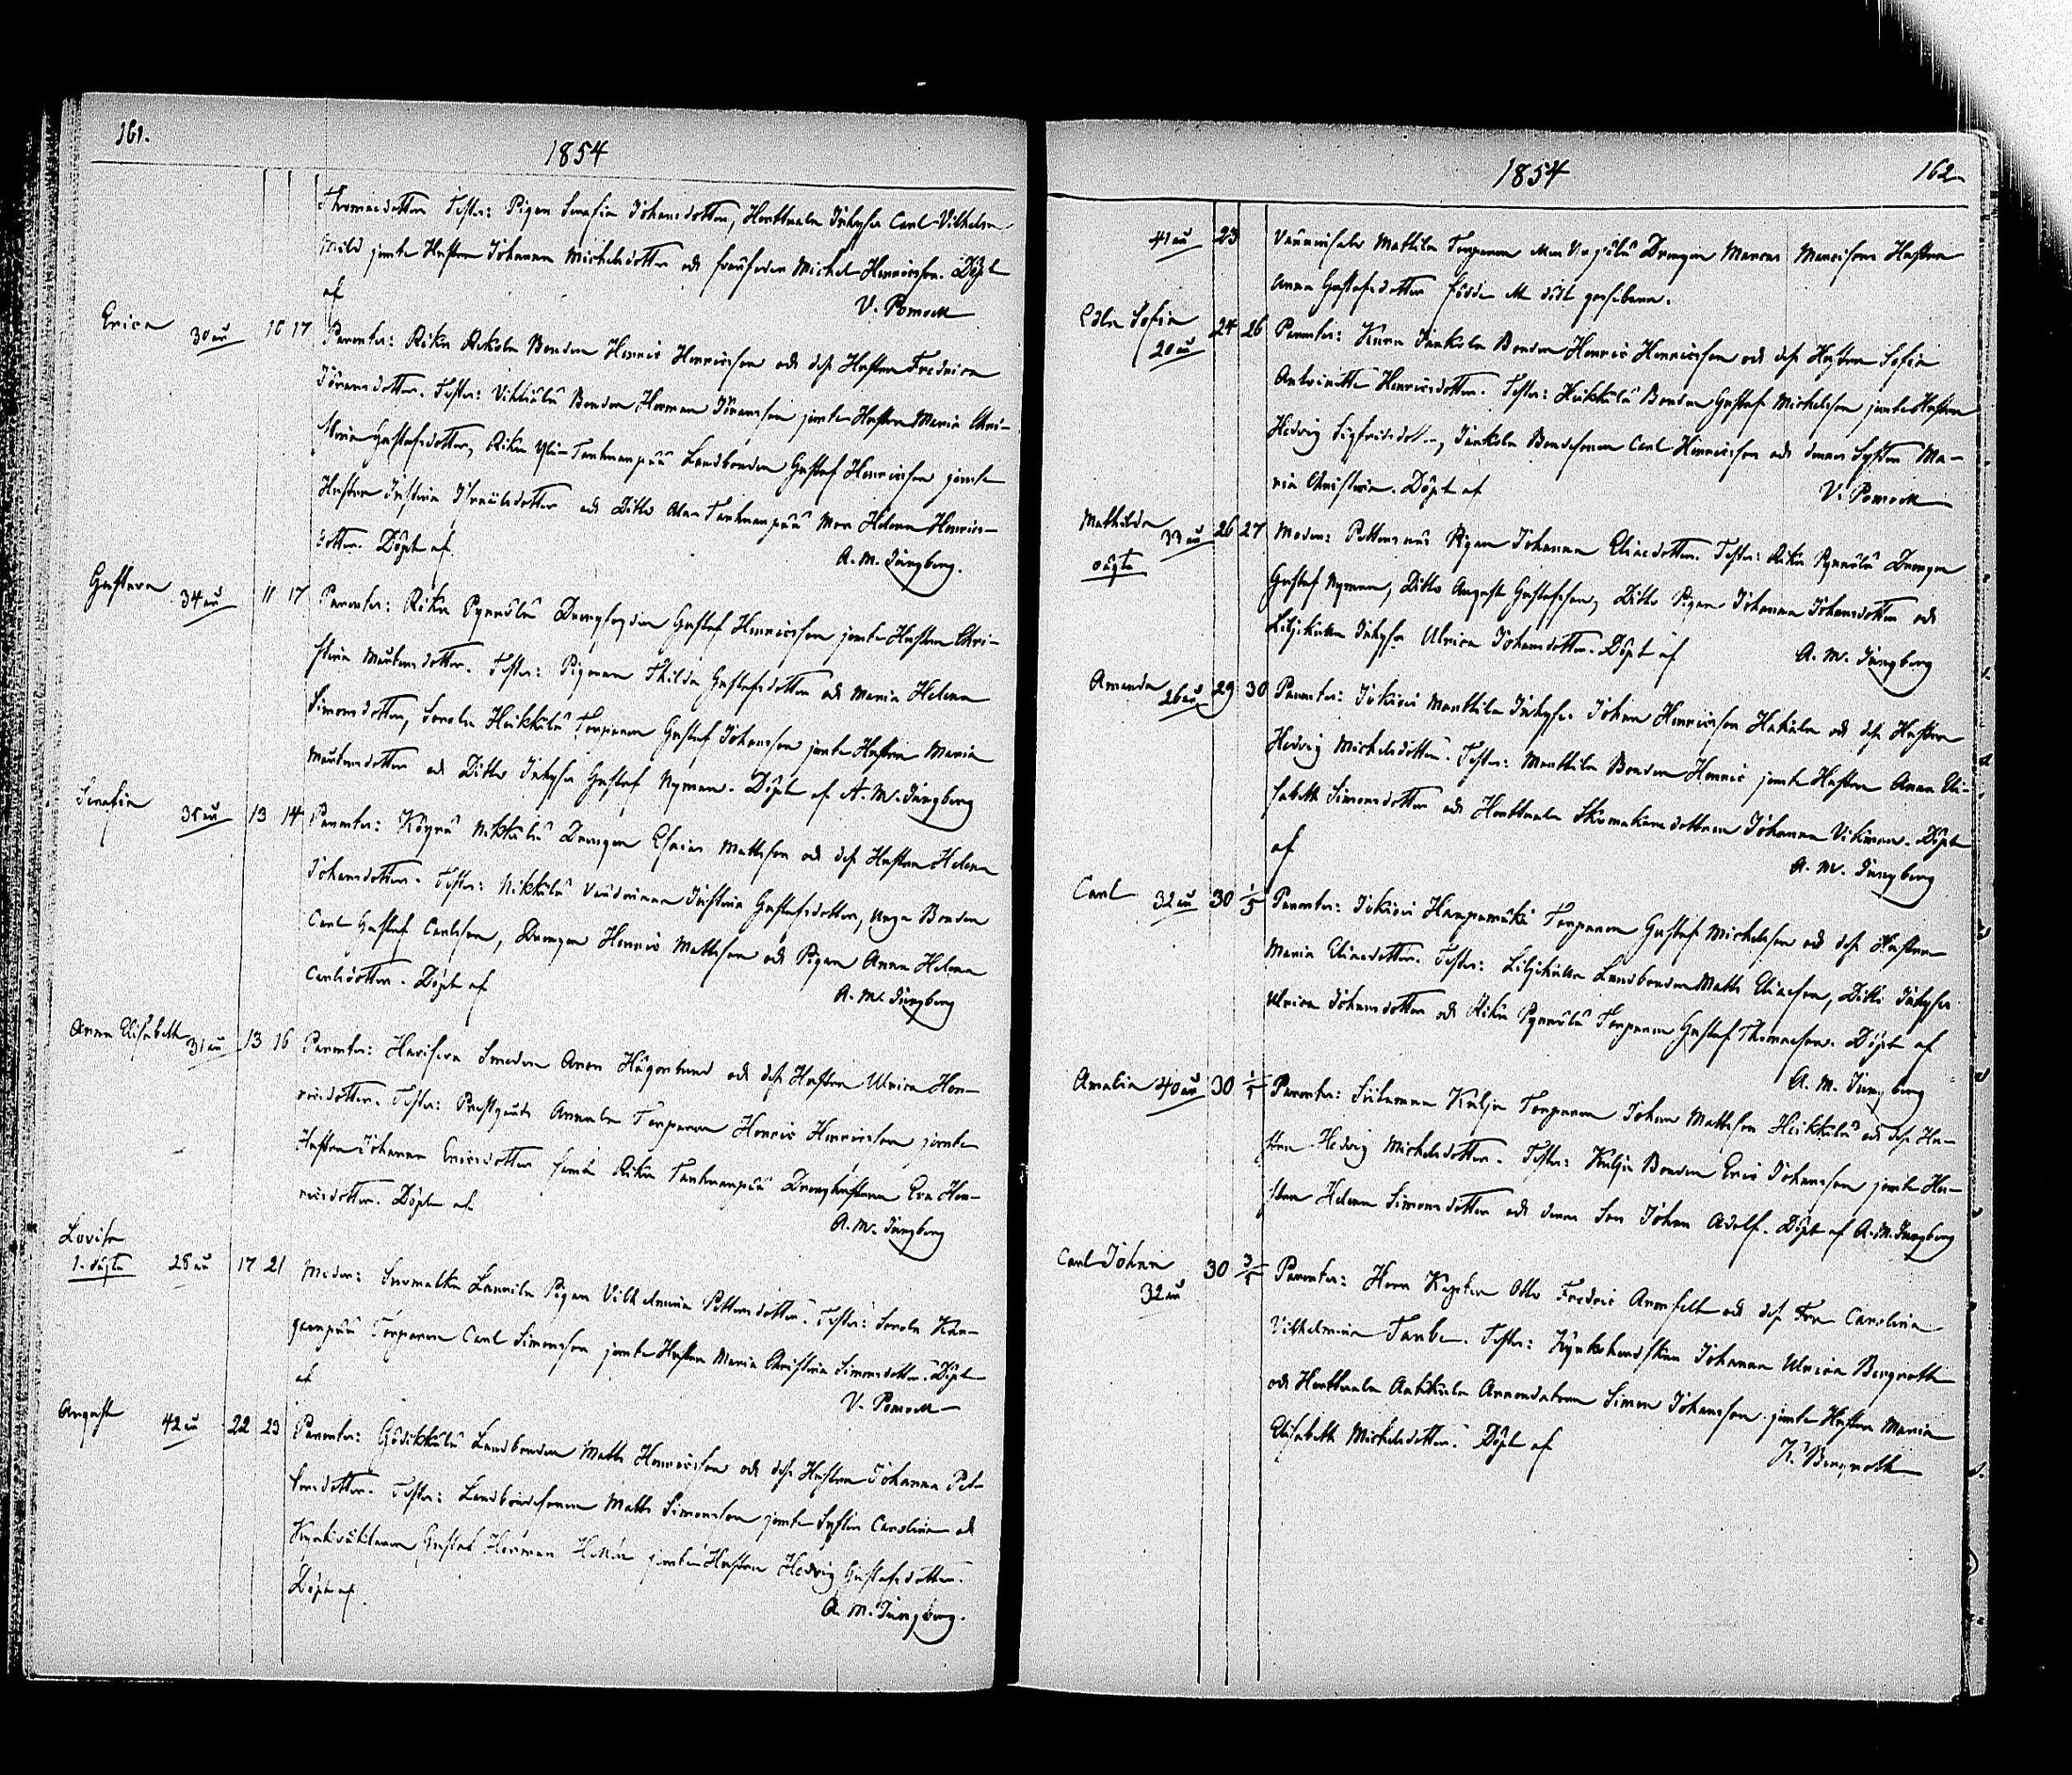 161.
1854
Thomasdotter Test: Pigan Serafia Johansdotter, Honttaala Inhyses Carl Vilhelm
Mild jemte Hustrun Johanna Michelsdotter och Michel Henricsson. Döpt
af V. Pomoell
Erica 30 år 10 17 Parentes: Rika Rekola Bonden Henric Henricsson och dess Hustru Fredrica
Göransdotter. Test: Bonden Herman Göransson jemte Hustru Maria Chri-
stina Gustafsdotter, Rika Yli-Tankaanpää Landbonden Gustaf Henricsson jemte
Hustrun Justina Israelsdotter och Ditto Ala-Tankaanpää Mor Helena Henrics-
dotter. Döpt af A. M. Ljungberg.
Gustava 34 år 11 17 Parentes: Rika Pynnölä Drengfogden Gustaf Henricsson jemte Hustru Chri-
stina Mårtensdotter. Test: Pigorna Thilda Gustafsdotter och Maria Helena
Simonsdotter, Sorola Heikkilä Torparen Gustaf Johansson jemte Hustru Maria
Mårtensdotter och Ditto Inhyses Gustaf Nyman. Döpt af A. M. Ljungberg
Serafia 35 år 13 14 Parentes: Köyrä Nikkilä Drengen Esaias Mattsson och dess Hustru Helena
Johansdotter. Test: Nikkilä Justina Gustafsdotter, unga Bonden
Carl Gustaf Carlsson, Drengen Henric Mattsson och Pigan Anna Helena
Carlsdotter. Döpt af A. M. Ljungberg
Anna Elisabeth 31 år 13 16 Parentes: Smeden Aron Hägerlund och dess Hustru Ulrica Hen-
ricsdotter. Test: Prestgårds Annala Torparen Henric Henricsson jemte
Hustru Johanna Ericsdotter samt Rika Tankaanpää Drenghustrun Eva Hen-
ricsdotter. Döpt af A. M. Ljungberg
Lovisa
1. oägta 28 år 17 21 Moder: Laurila Pigan Vilhelmina Pettersdotter. Test: Sorola Kan-
gaanpää Torparen Carl Simonsson jemte Hustru Maria Christina Simonsdotter. Döpt
af V. Pomoell
August 42 år 22 23 Parentes: Gödikkälä Landbonden Matts Henricsson och dess Hustru Johanna Pet-
tersdotter. Test: Landbondesonen Matts Simonsson jemte Syster Carolina och
Kyrkväktaren Gustaf Herman jemte Hustru Hedvig Gustafsdotter.
Döpt af A. M. Ljungberg.
1854 162
41 år 23 Mattila Torparen Drengen Marcus Marcisons Hustru
Anna Gustafsdotter födde ett dödt gossebarn.
Edla Sofia
20 år 24 26 Parentes: Jankola Bonden Henric Henricsson och dess Hustru Sofia
Antoinetta Henricsdotter. Test: Heikkilä Bonden Gustaf Michelsson jemte Hustru
Hedvig Sigfridsdotter, Jankola Bondesonen Carl Henricsson och dennes Syster Ma-
ria Christina. Döpt af V. Pomoell
Mathilda 33 år
oägta 26 27 Moder: Pigan Johanna Eliasdotter. Test: Rika Pynnölä Drengen
Gustaf Nyman, Ditto August Gustafsson, Ditto Pigan Johanna Johansdotter och
Liljikulla Inhyses Ulrica Johansdotter. Döpt af A. M. Ljungberg
Amanda 26 år 29 30 Parentes: Jokiois Manttila Inhyses Johan Henricsson Hakala och dess Hustru
Hedvig Michelsdotter. Test: Manttila Bonden Henric jemte Hustru Anna Eli-
sabeth Simonsdotter och Honttaala Skomakaredottern Johanna Vikman. Döpt
af A. M. Ljungberg
Carl 32 år 30 1/5 Parentes: Jokiois Haapamäki Torparen Gustaf Michelsson och dess Hustru
Maria Eliasdotter. Test: Liljikulla Landbonden Matts Eliasson, Ditto Inhyses
Ulrica Johansdotter och Rika Pynnölä Torparen Gustaf Thomasson. Döpt af
A. M. Ljungberg
Amalia 40 år 30 1/5 Parentes: Kulja Torparen Johan Mattsson Heikkilä och dess Hu-
stru Hedvig Michelsdotter. Test: Kulja Bonden Eric Johansson jemte Hu-
stru Helena Simonsdotter och dennes Son Johan Adolf. Döpt af A. M. Ljungberg
Carl Johan
32 år 30 3/5 Parentes: Herr Kapten Otto Fredric Armfelt och dess Fru Carolina
Vilhelmina Taube. Test: Johanna Ulrica Bergroth
och Honttaala Anttikala Arrendatorn Simon Johansson jemte Hustru Maria
Elisabeth Michelsdotter. Döpt af K. Bergroth